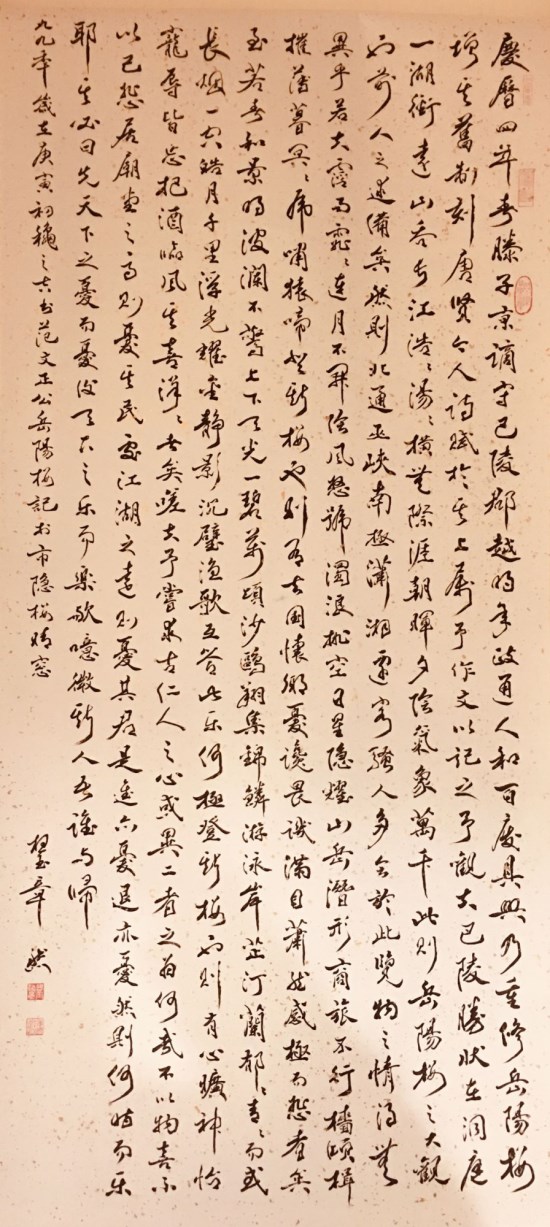 慶曆四年春滕子京謫守巴陵郡越明年政通人和百廢具興乃重修岳陽樓
增其舊制刻唐賢今人詩賦於其上屬予作文以記之予觀夫巴陵勝狀在洞庭
一湖銜遠山吞長江浩〻湯〻橫無際涯朝暉夕陰氣象萬千此則岳陽樓之大觀
也前人之述備矣然則北通巫峽南極瀟湘遷客騷人多會於此覽物之情得無
異乎若夫霪雨霏〻連月不開陰風怒號濁浪排空日星隱耀山岳潛形商旅不行檣傾楫
摧薄暮冥〻虎嘯猿啼登斯樓也則有去國懷鄉憂讒畏譏滿目蕭然感極而悲者矣
至若春和景明波瀾不驚上下天光一碧萬頃沙鷗翔集錦鱗游泳岸芷汀蘭郁〻青〻而或
長烟一空皓月千里浮光耀金靜影沉璧漁歌互答此乐何極登斯樓也則有心曠神怡
寵辱皆忘把酒臨風其喜洋〻者矣嗟夫予嘗求古仁人之心或異二者之為何哉不以物喜不
以己悲居廟堂之高則憂其民處江湖之遠則憂其君是進亦憂退亦憂然則何時而乐
耶其必曰先天下之憂而憂後天下之乐而樂歟噫微斯人吾誰與歸
九九年歲在庚寅初穐之吉書范文正公岳陽樓記於市隱樓晴窓